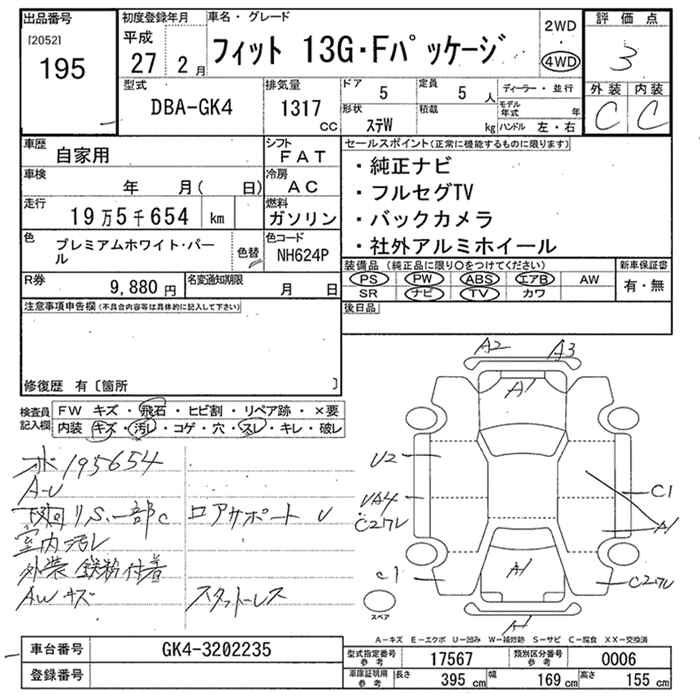 出品番号
[2052]
195
初度登録年月
平成
27 2 月
車名・グレード
フィット 13G・Fパッケージ
2WD
4WD
評価点
3
外装 内装
C C
型式
DBA-GK4
排気量
1317
CC
ドア
5
定員
5 人
形状
ステW
積載
kg
ディーラー・並行
モデル年式 年
ハンドル 左・右
車歴
自家用
シフト
FAT
車検
年 月( 日)
冷房
AC
走行
19万5千654 km
燃料
ガソリン
色
プレミアムホワイト・パール
色替
色コード
NH624P
R券
9,880 円
名変通知期限
月 日
セールスポイント(正常に機能するものに限ります)
・純正ナビ
・フルセグTV
・バックカメラ
・社外アルミホイール
装備品 (純正品に限り○をつけてください)
PS PW ABS エアB AW
SR ナビ TV カワ
新車保証書
有・無
後日品
注意事項申告欄(不具合内容等は具体的に記入して下さい)
修復歴 有〔箇所 〕
検査員記入欄
FW キズ・飛石・ヒビ割・リペア跡・×要
内装 キズ・汚レ・コゲ・穴・スレ・キレ・破レ
195654
A-U
下廻りS.一部C ロアサポート U
室内汚レ
外装鉄粉付着
AWキズ スタットレス
A2 A3
A1
U2
UA4
C1
A1
C1
A1
A1
スペア
A-キズ E-エクボ U-凹み W-補修跡 S-サビ C-腐食 XX-交換済
車台番号
GK4-3202235
登録番号
型式指定番号
参考
17567
類別区分番号
参考
0006
車庫証明用
参考
長さ 395 cm
幅 169 cm
高さ 155 cm